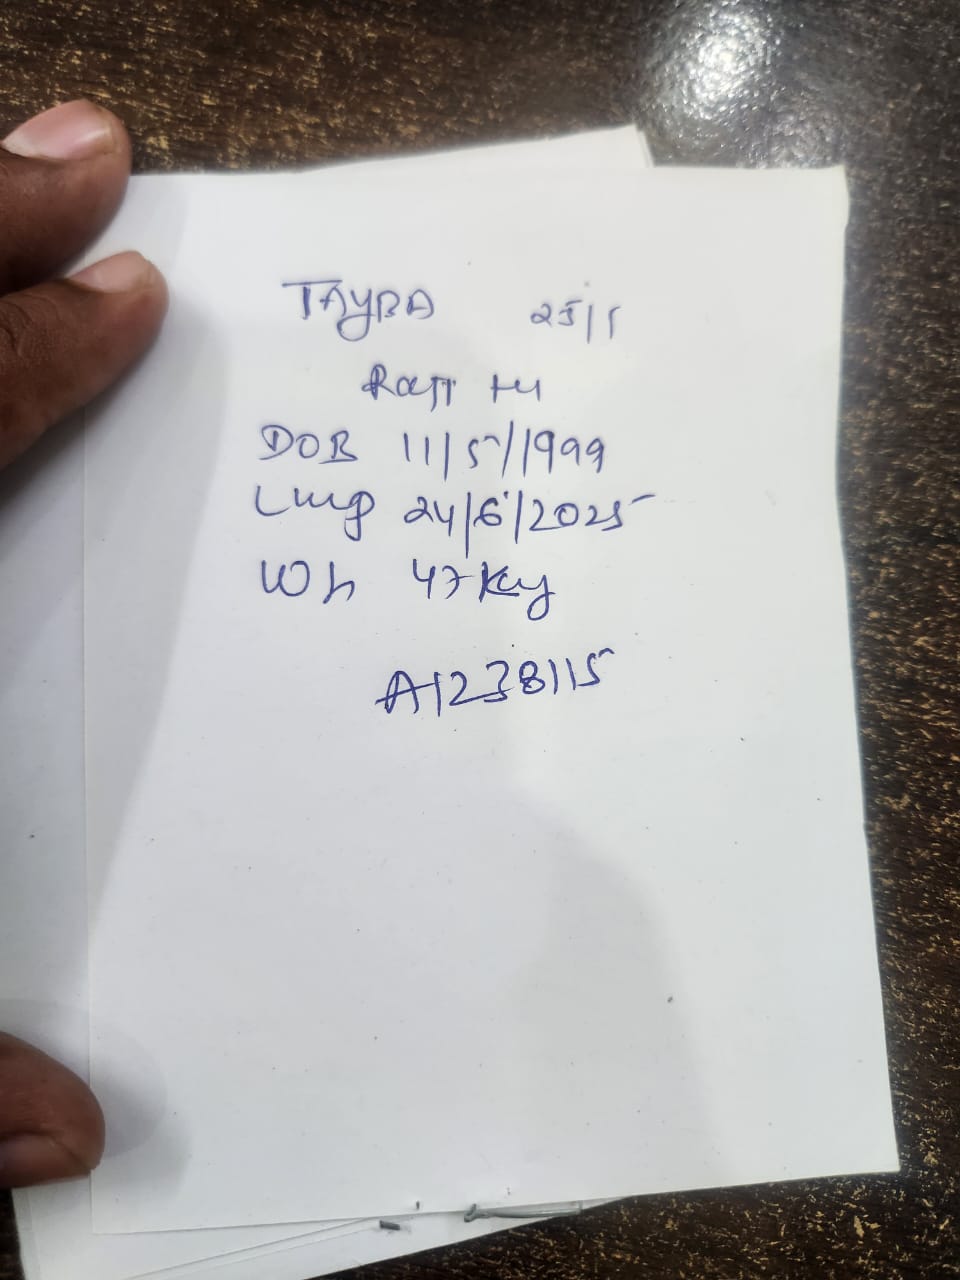 TAYBA 25/1
DOB 11/5/1999
Lmp 24/6/2025
Wt 47 Kg
A1238115